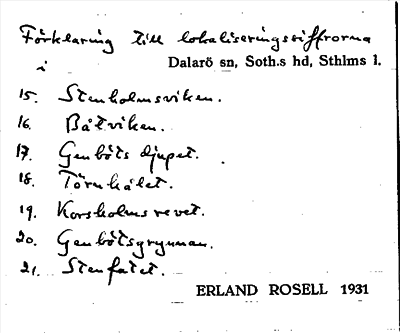 Förklaring till lokaliseringssiffrorna
i Dalarö sn, Soth.s hd, Sthlms l.
15. Stenholmsviken.
16. Båtviken.
17. Genböts djupet.
18. Törnhålet.
19. Korsholmsrevet.
20. Genbötsgrynnan.
21. Stenfatet.
ERLAND ROSELL 1931